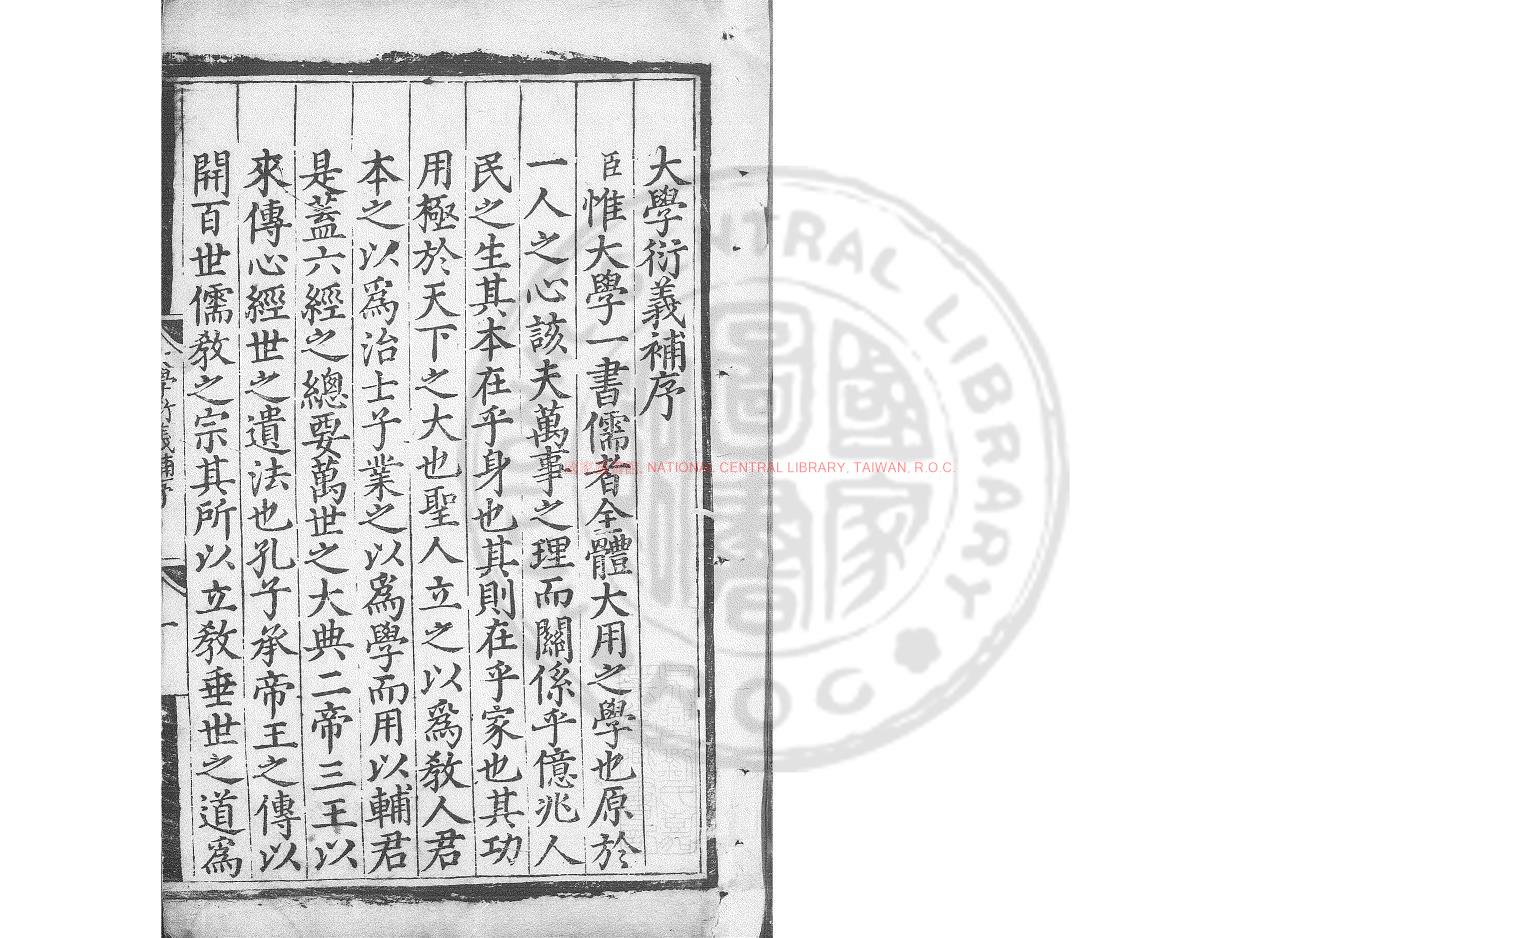 大學衍義補序
臣惟大學一書儒者全體大用之學也原於
一人之心該夫萬事之理而關係乎億兆人
民之生其本在乎身也其則在乎家也其功
用極於天下之大也聖人立之以爲教人君
本之以爲治士子業之以爲學而用以輔君
是蓋六經之總要萬世之大典二帝三王以
來傳心經世之遺法也孔子承帝王之傳以
開百世儒教之宗其所以立教垂世之道爲
大學衍義補序
一
國家圖書館, NATIONAL CENTRAL LIBRARY, TAIWAN, R.O.C.
CENTRAL LIBRARY
ROC
國家圖書